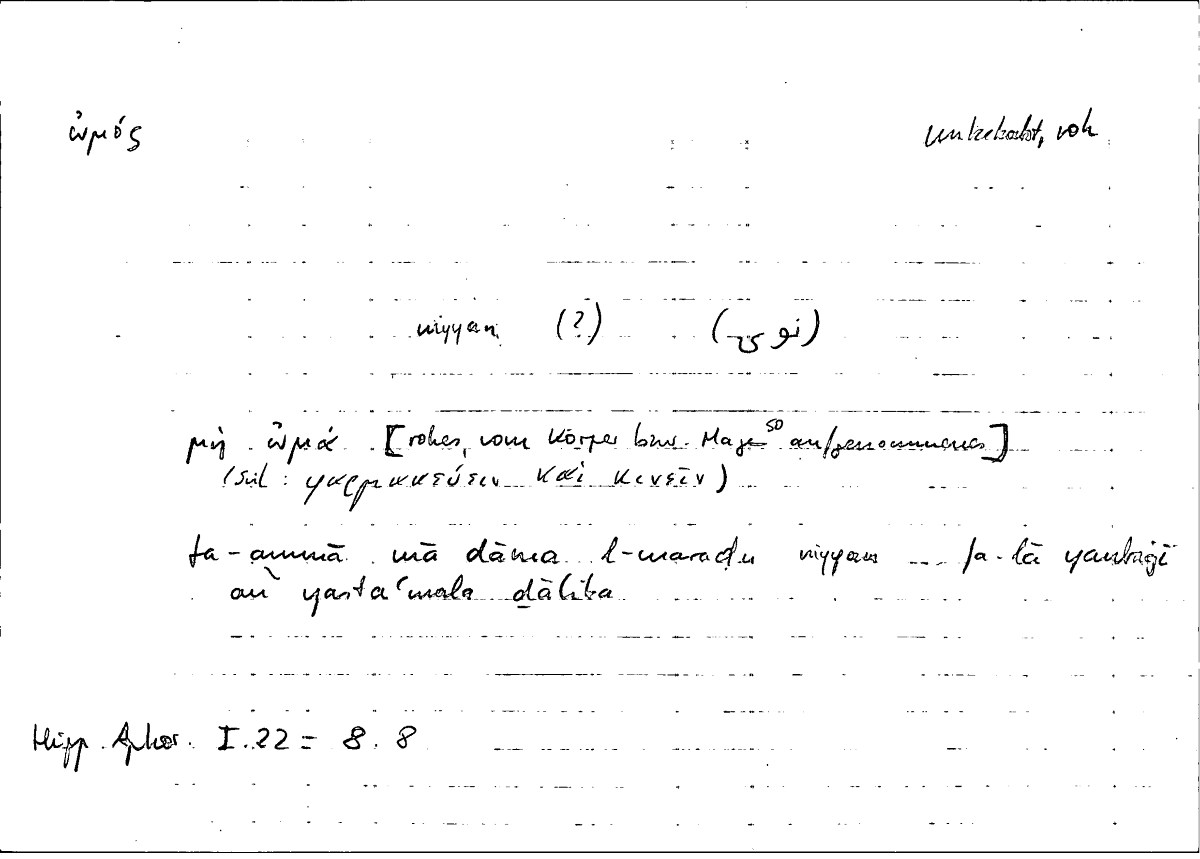 ὠμός ungekocht, roh
niyyan (?) (نوى)
μὴ ὠμά [rohes, vom Körper bzw. Magen so aufgenommenes]
(scil: φαρμακεύειν καὶ κινεῖν)
fa-ammā mā dāma l-maraḍu niyyan ... fa-lā yanbaġī
an yastaʿmala ḏālika
Hipp. Aphor. I.22 = 8.8